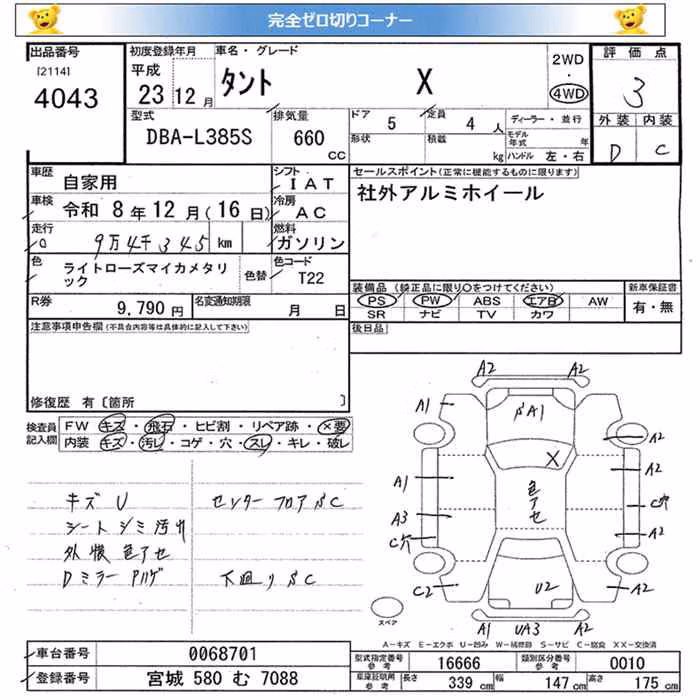 完全ゼロ切りコーナー
出品番号
[2114]
4043
初度登録年月
平成
23 12月
車名・グレード
タント X
2WD
・
4WD
評価点
3
外装 内装
D C
型式
DBA-L385S
排気量
660
CC
ドア
5
形状
定員
4人
積載
kg
ディーラー・並行
モデル
年式 年
ハンドル 左・右
車歴
自家用
シフト
IAT
車検
令和 8年12月(16日)
冷房
AC
走行
9万4千345 km
燃料
ガソリン
色
ライトローズマイカメタリ
ック
色替
色コード
T22
R券
9,790円
名変通知期限
月 日
セールスポイント(正常に機能するものに限ります)
社外アルミホイール
装備品(純正品に限り○をつけてください)
PS PW ABS エアB AW
SR ナビ TV カワ
新車保証書
有・無
後日品
注意事項申告欄(不具合内容等は具体的に記入して下さい)
修復歴 有〔箇所 〕
検査員
記入欄
FW キズ・飛石・ヒビ割・リペア跡・×要
内装 キズ・汚レ・コゲ・穴・スレ・キレ・破レ
キズ U
シートシミ汚れ
外装色アセ
Dミラー ハゲ
センターフロアSC
下回りSC
A2 A2
A1
SA1
A2
X
A2
A1
色アセ
C穴
A3
A2
C穴
C2
U2
A2
A1 UA3 A2
スペア
A-キズ E-エクボ U-凹み W-補修跡 S-サビ C-腐食 XX-交換済
車台番号
0068701
登録番号
宮城 580 む 7088
型式指定番号
参考
16666
類別区分番号
参考
0010
車庫証明用
参考
長さ
339cm
幅
147cm
高さ
175cm